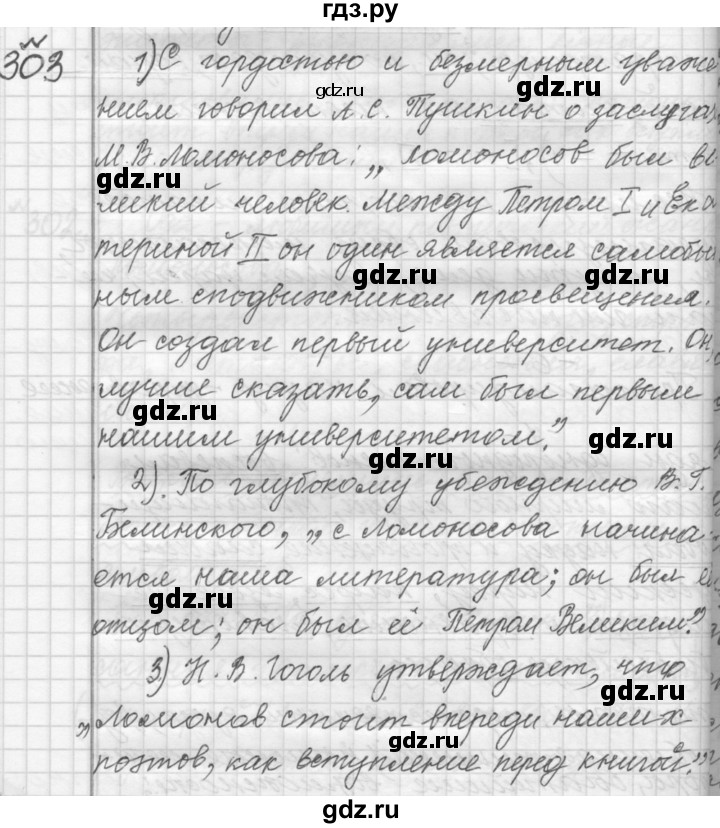 гдз.ру
303 1) С гордостью и безмерным уваже
gdz.ru
нием говорил А.С. Пушкин о заслуга
М.В. Ломоносова: „Ломоносов был ве
gdz.ru gdz.ru
ликий человек. Между Петром I и Ека
териной II он один является самобы
gdz.ru gdz.ru
ным сподвижником просвещения.
Он создал первый университет. Он,
gdz.ru
лучше сказать, сам был первым
gdz.ru
нашим университетом."
gdz.ru gdz.ru
2). По глубокому убеждению В.Г.
Белинского, „с Ломоносова начина
ется наша литература; он был е
gdz.ru
отцом; он был её Петром Великим."
3) Н.В. Гоголь утверждает, что
gdz.ru
„Ломонов стоит впереди наших
gdz.ru
поэтов, как вступление перед книгой."
gdz.ru